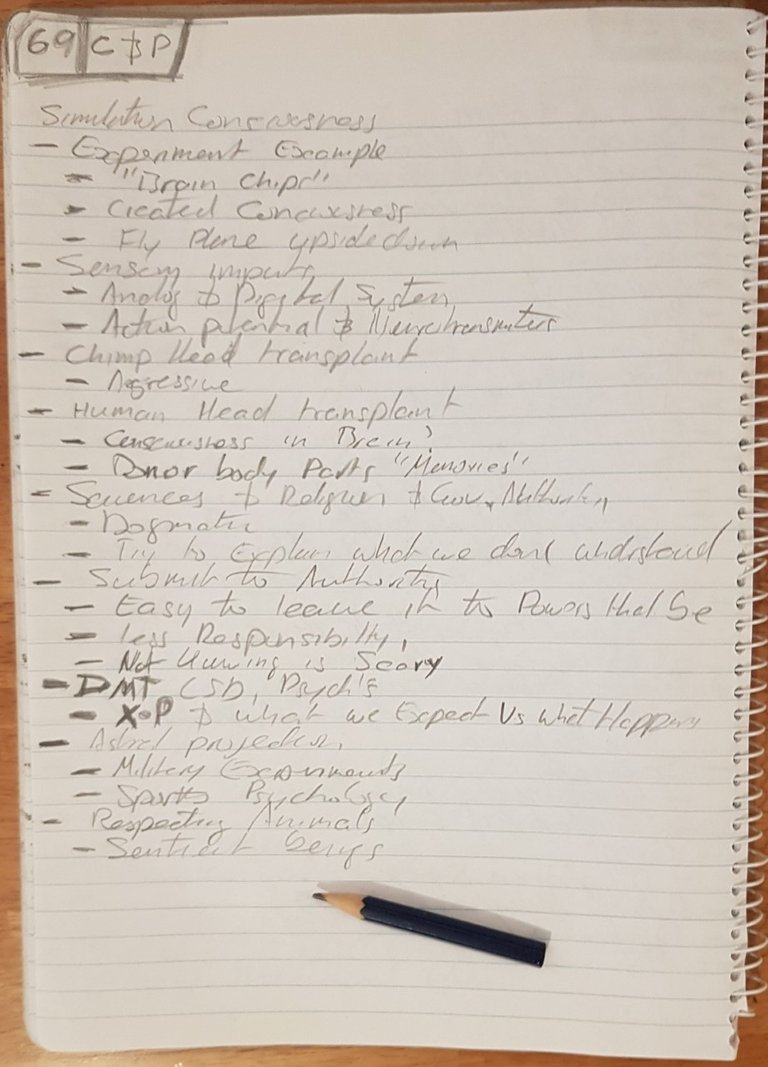 69 C & P
Simulation Consciousness
- Experiment Example
- "Brain Chips"
- Created Consciousness
- Fly Plane upsidedown
- Sensory inputs
- Analog & Digital System
- Action potential & Neurotransmitters
- Chimp Head transplant
- Agressive
- Human Head transplant
- Consciousness in Brain?
- Donor body Parts "Memories"
- Sciences & Religion & Gov. Authority
- Dogmatic
- Try to Explain what we dont understand
- Submit to Authority
- Easy to leave it to Powers that be
- less Responsibility,
- Not knowing is Scary
- DMT LSD, Psych's
- X.P & what we Expect Vs what Happens
- Astral projection,
- Military Experiments
- Sports Psychology
- Respecting Animals
- Sentient beings